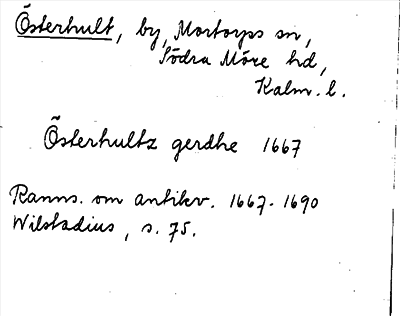 Österhult, by, Mortorps sn,
Södra Möre hd,
Kalm. l.
Österhultz gerdhe 1667
Ranns. om antikv. 1667-1690
Wilstadius, s. 75.